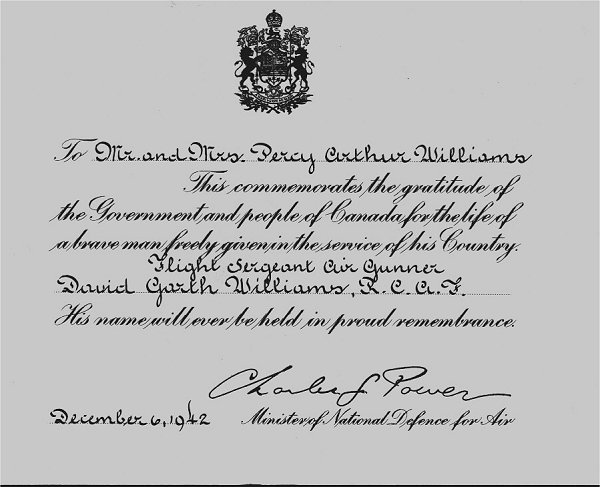 To Mr. and Mrs. Percy Arthur Williams
This commemorates the gratitude of
the Government and people of Canada for the life of
a brave man freely given in the service of his Country.
Flight Sergeant Air Gunner
David Garth Williams, R.C.A.F.
His name will ever be held in proud remembrance.
Charles G Power
December 6, 1942 Minister of National Defence for Air